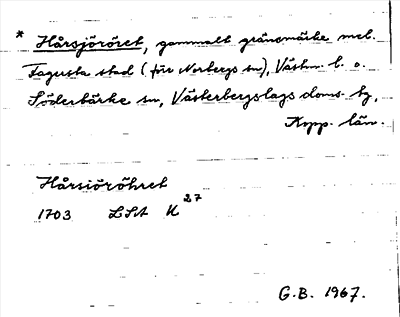 * Hårsjöröret, gammalt gränsmärke mel.
Fagersta stad (för Norbergs sn), Västm. l. o.
Söderbärke sn, Västerbergslags doms. hg,
Kopp. län.
Hårsiöröhret
1703 LSA U 27
G.B. 1967.